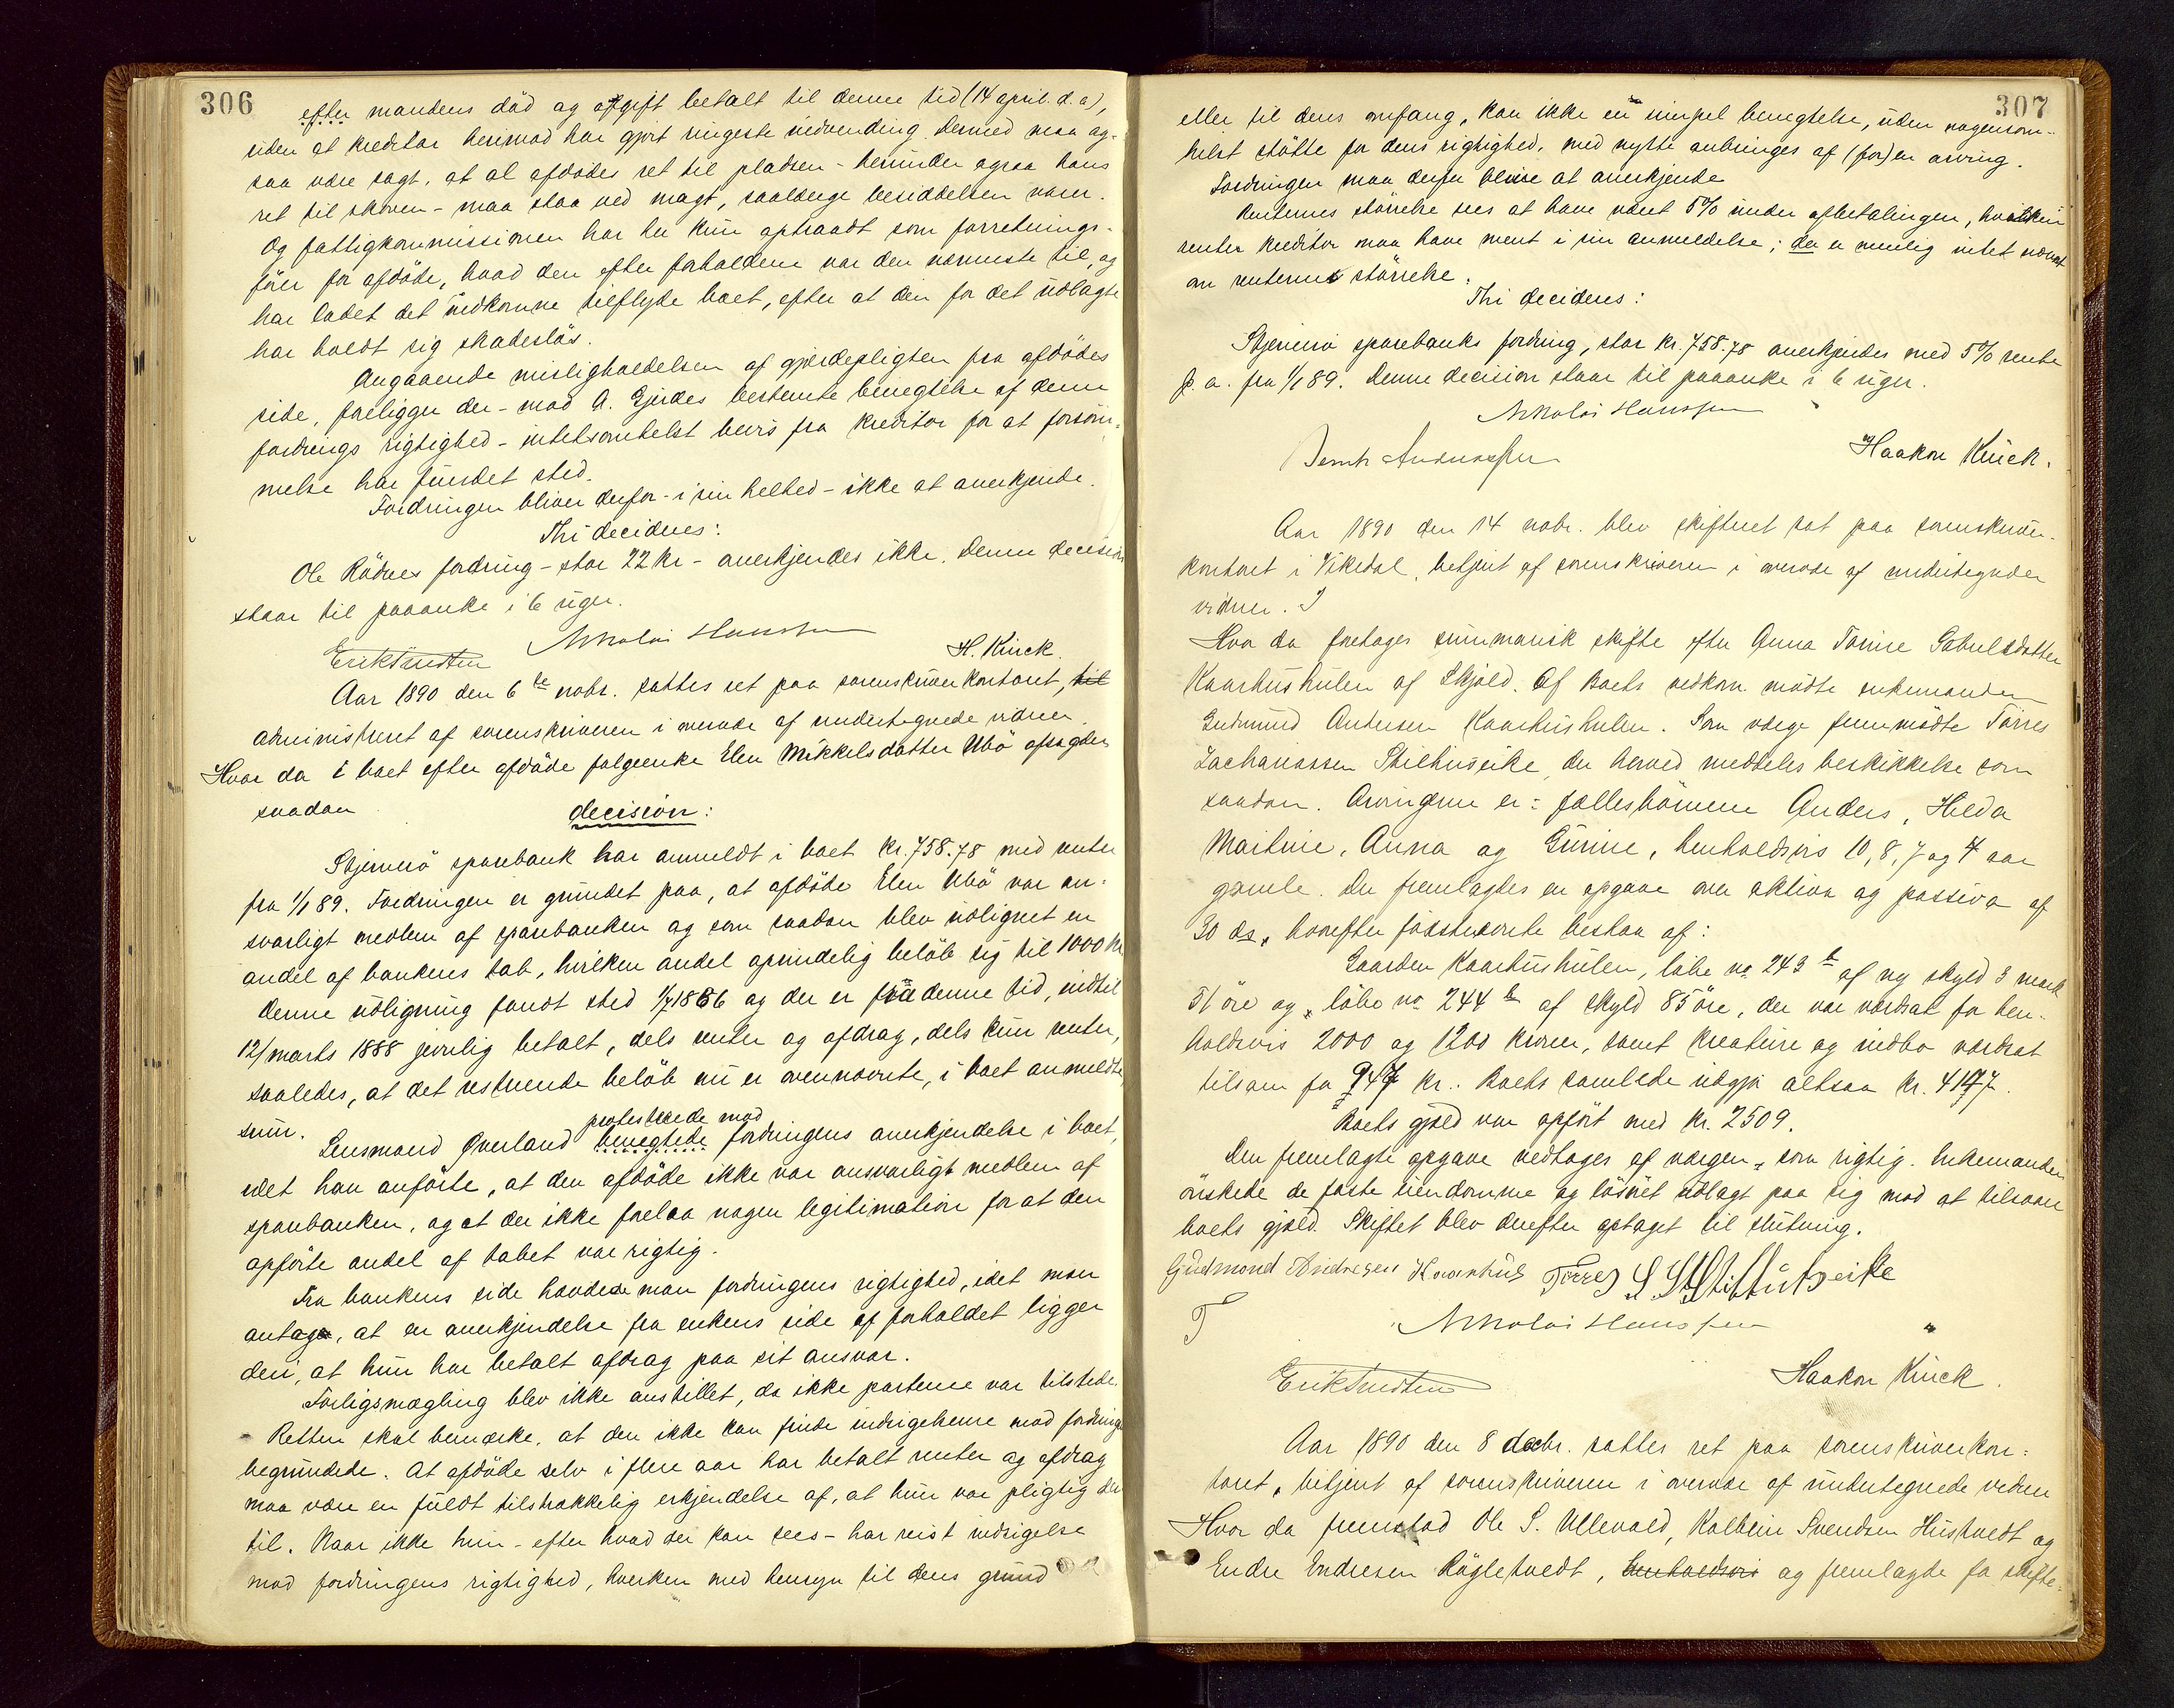 306
efter mandens död og afgift betalt til denne tid (14 april d. a),
uden at kreditor herimod har gjort ringeste indvending. Dermed maa og-
saa være sagt, at al afdødes ret til pladsen - herunder ogsaa hans
ret til skoven - maa staa ved magt, saalænge besiddelsen varer.
Og fattigkommissionen har her kun optraadt som forretnings-
förer for afdöde, hvad den efter forholdene var den nærmeste til, og
har ladet det indkomne tilflyde boet, efter at den for det udlagte
har holdt sig skadeslös.
Angaaende misligholdelsen af gjerdepligten fra afdödes
side, foreligger der - mod A. Gjerdes bestemte benegtelse af denne
fordrings rigtighed - intetsomhelst bevis fra kreditor for at forsöm-
melse har fundet sted.
Fordringen bliver derfor - i sin helhed - ikke at anerkjende.
Thi decideres:
Ole Rödnes fordring - stor 22 kr - anerkjendes ikke. Denne decision
staar til paaanke i 6 uger.
Nikolai Hanssen
Erik Knudsen H. Kinck.
Aar 1890 den 6te nobr. sattes ret paa sorenskriverkontoret, til
administreret af sorenskriveren i overvær af undertegnede vidner.
Hvor da i boet efter afdöde folgeenke Elen Mikkelsdatter Ubö afsagdes
saadan decision:
Skjernerö sparebank har anmeldt i boet kr. 758.78 med renter
fra 1/1 89. Fordringen er grundet paa, at afdöde Elen Ubö var an-
svarligt medlem af sparebanken og som saadan blev udlignet en
andel af bankens tab, hvilken andel oprindelig beløb sig til 1000 kr
Denne udligning fandt sted 1/7 1886 og der er fra denne tid, indtil
12/marts 1888 jevnlig betalt, dels renter og afdrag, dels kun renter,
saaledes, at det resterende belöb nu er ovennævnte, i boet anmeldte
sum.
protesterede mod
Lensmand Qverland benegtede fordringens anerkjendelse i boet,
idet han anförte, at den afdöde ikke var ansvarligt medlem af
sparebanken, og at der ikke forelaa nogen legitimation for at den
opförte andel af tabet var rigtig.
Fra bankens side hævdede man fordringens rigtighed, idet man
antager, at en anerkjendelse fra enkens side af forholdet ligger
deri, at hun har betalt afdrag paa sit ansvar.
Forligsmægling blev ikke anstillet, da ikke parterne var tilstede.
Retten skal bemærke, at den ikke kan finde indsigelserne mod fordringen
begrundede. At afdöde selv i flere aar har betalt renter og afdrag
maa være en fuldt tilstrækkelig erkjendelse af, at hun var pligtig der-
til. Naar ikke hun - efter hvad der kan sees - har reist indsigelse
mod fordringens rigtighed, hverken med hensyn til dens grund
307
eller til dens omfang, kan ikke en simpel benegtelse, uden nogensom-
helst støtte for dens rigtighed, med nytte anbringes af (for) en arving.
Fordringen maa derfor blive at anerkjende
Renternes størrelse sees at have været 5% under afbetalingen, hvilken
renter kreditor maa have ment i sin anmeldelse; der er nemlig intet nævnt
om renternes störrelse.
Thi decideres:
Skjernerö sparebanks fordring, stor kr. 758.78 anerkjendes med 5% rente
p. a. fra 1/1 89. Denne decision staar til paaanke i 6 uger.
Nikolai Hanssen
Bernh Andreassen Haakon Kinck.
Aar 1890 den 14 nobr. blev skifteret sat paa sorenskriver-
kontoret i Vikedal, betjent af sorenskriveren i overvær af undertegnede
vidner.
Hvor da foretages summarisk skifte efter Anna Tonine Gabrielsdatter
Kaarhushulen af Skjold. Af Boets vedkom. mödte enkemanden
Gudmund Andersen Kaarhushulen. Som værge fremmödte Törres
Zachariassen Stulhuseike, der herved meddeles beskikkelse som
saadan. Arvingerne er: fællesbörnene Anders, Hilda
Maitine, Anna og Gurine, henholdsvis 10, 8, 7 og 4 aar
gamle. Der fremlagdes en opgave over aktiva og passiva af
30 ds, hvorefter förstnævnte bestaa af:
Gaarden Kaarhushulen, löbe no 243 b af ny skyld 3 mark
51 öre og löbe no 244 b af skyld 85 öre, der var værdsat for hen-
holdsvis 2000 og 1200 kroner, samt kreature og indbo værdsat
tilsam. for 947 kr. Boets samlede udgjør altsaa kr. 4147.
Boets gjæld var opfört med kr. 2509.
Den fremlagte opgave vedtoges af værgen som rigtig. Enkemanden
önskede de faste eiendomme og lösöret udlagt paa sig mod at tilsvare
boets gjæld. Skiftet blev derefter optaget til slutning.
Gudmond Andresen Kaarhus Törres S. Stulhuseike
T
Nikolai Hanssen
Erik Knudsen Haakon Kinck.
Aar 1890 den 8 decbr. sattes ret paa sorenskriverkon-
toret, betjent af sorenskriveren i overvær af undertegnede vidner
Hvor da fremstod Ole S. Ullevold, Kolbein Svendsen Husthvedt og
Endre Endresen Røgletvedt, henholdsvis og fremlagde for skifte-